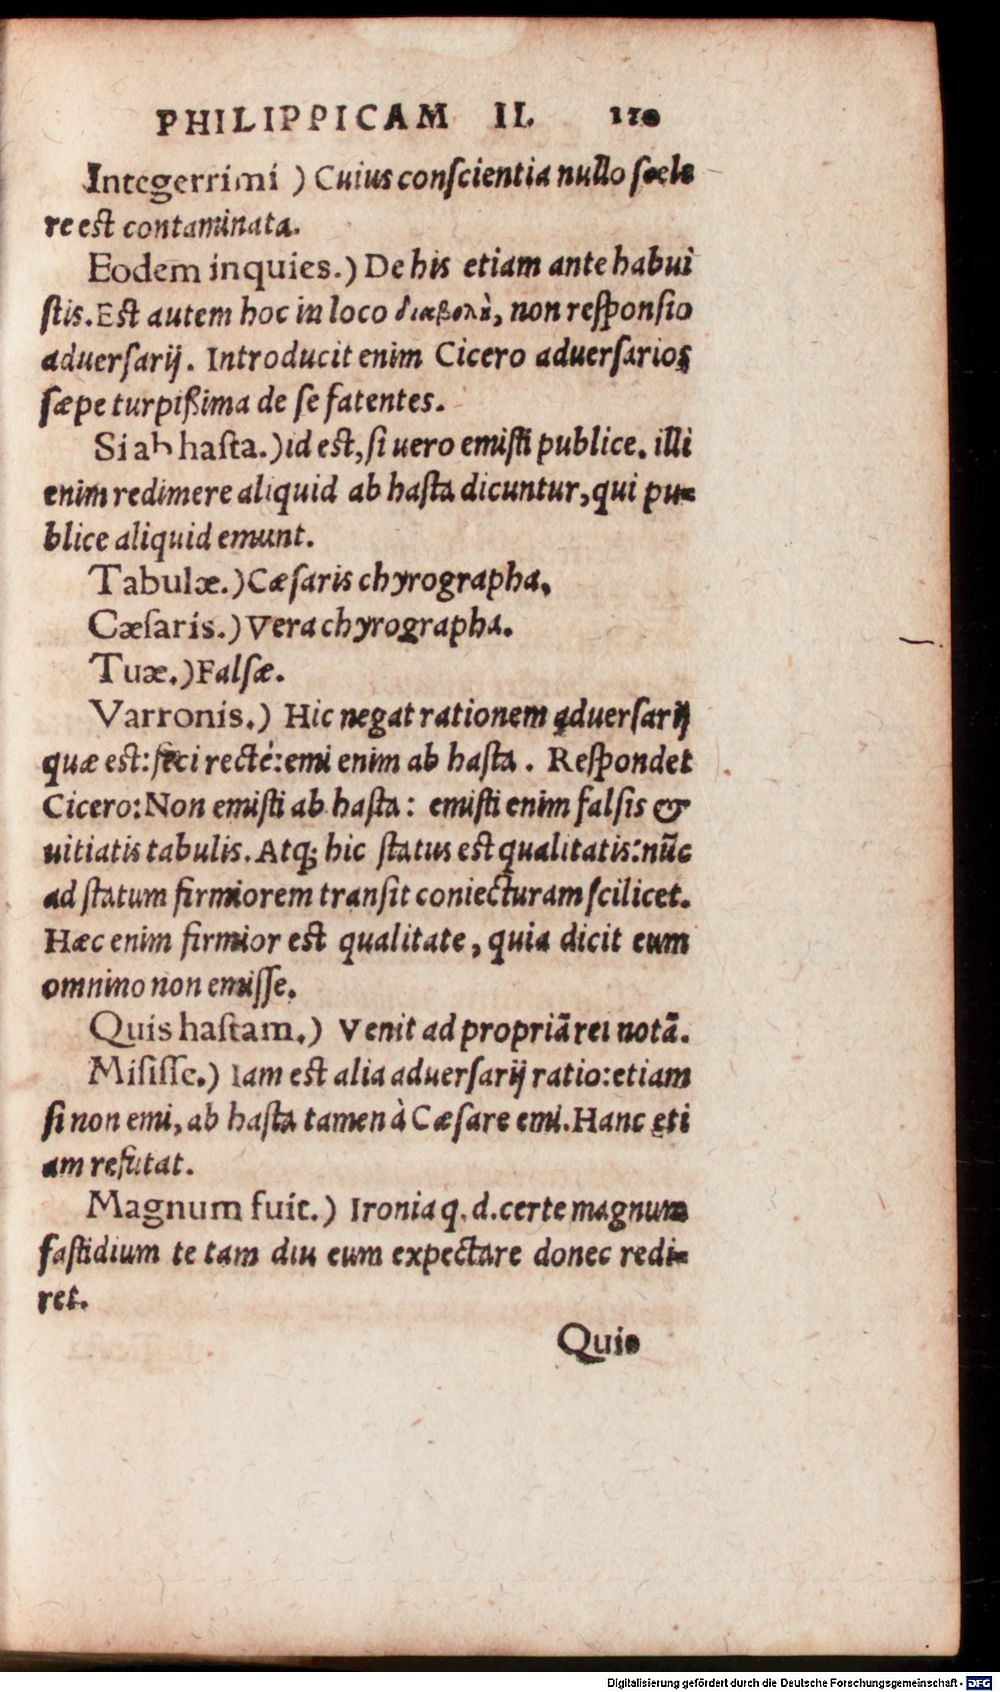 PHILIPPICAM II. 110
Integerrimi ) Cuius conſcientia nullo ſcele
re est contaminata.
Eodem inquies.) De his etiam ante habui
ſtis. Est autem hoc in loco διαβολὴ, non reſponſio
aduerſarij. Introducit enim Cicero aduerſarios
ſæpe turpißima de ſe fatentes.
Si ab haſta.) id est, ſi uero emiſti publice. illi
enim redimere aliquid ab haſta dicuntur, qui pu-
blice aliquid emunt.
Tabulæ.) Cæſaris chyrographa.
Cæſaris.) Vera chyrographa.
Tuæ.) Falſæ.
Varronis.) Hic negat rationem aduerſarij
quæ est: feci recté: emi enim ab haſta. Reſpondet
Cicero: Non emiſti ab haſta: emiſti enim falſis &
uitiatis tabulis. Atq; hic ſtatus est qualitatis: nũc
ad ſtatum firmiorem tranſit coniecturam ſcilicet.
Hæc enim firmior est qualitate, quia dicit eum
omnino non emiſſe.
Quis haſtam.) Venit ad propriā rei notā.
Miſiſſe.) Iam est alia aduerſarij ratio: etiam
ſi non emi, ab haſta tamen à Cæſare emi. Hanc eti
am refutat.
Magnum fuit.) Ironia q. d. certe magnum
faſtidium te tam diu eum expectare donec redi-
ret.
Quis
Digitalisierung gefördert durch die Deutsche Forschungsgemeinschaft - DFG